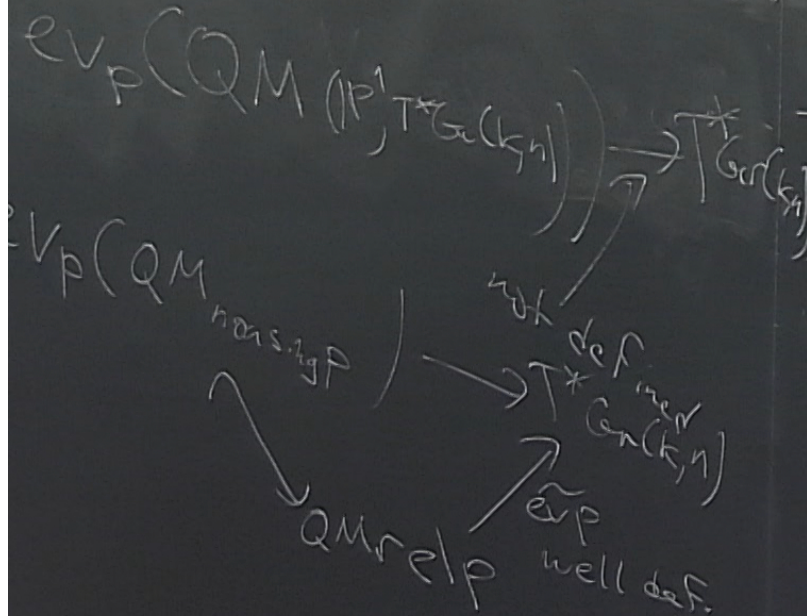 ev_p(QM(P^1, T*Gr(k,n))) → T*Gr(k,n)
not defined
ev_p(QM_nonsing p) → T*Gr(k,n)
QM_rel p
ẽv_p
well def.